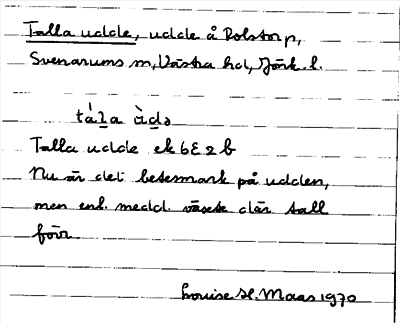 Talla udde, udde å Rolstorp,
Svenarums sn, Västra hd, Jönk. l.
tàl̠a ùd̠ə
Talla udde ek 6E2b
Nu är det betesmark på udden,
men enl. medd. växte där tall
förr.
Louise H. Maas 1970